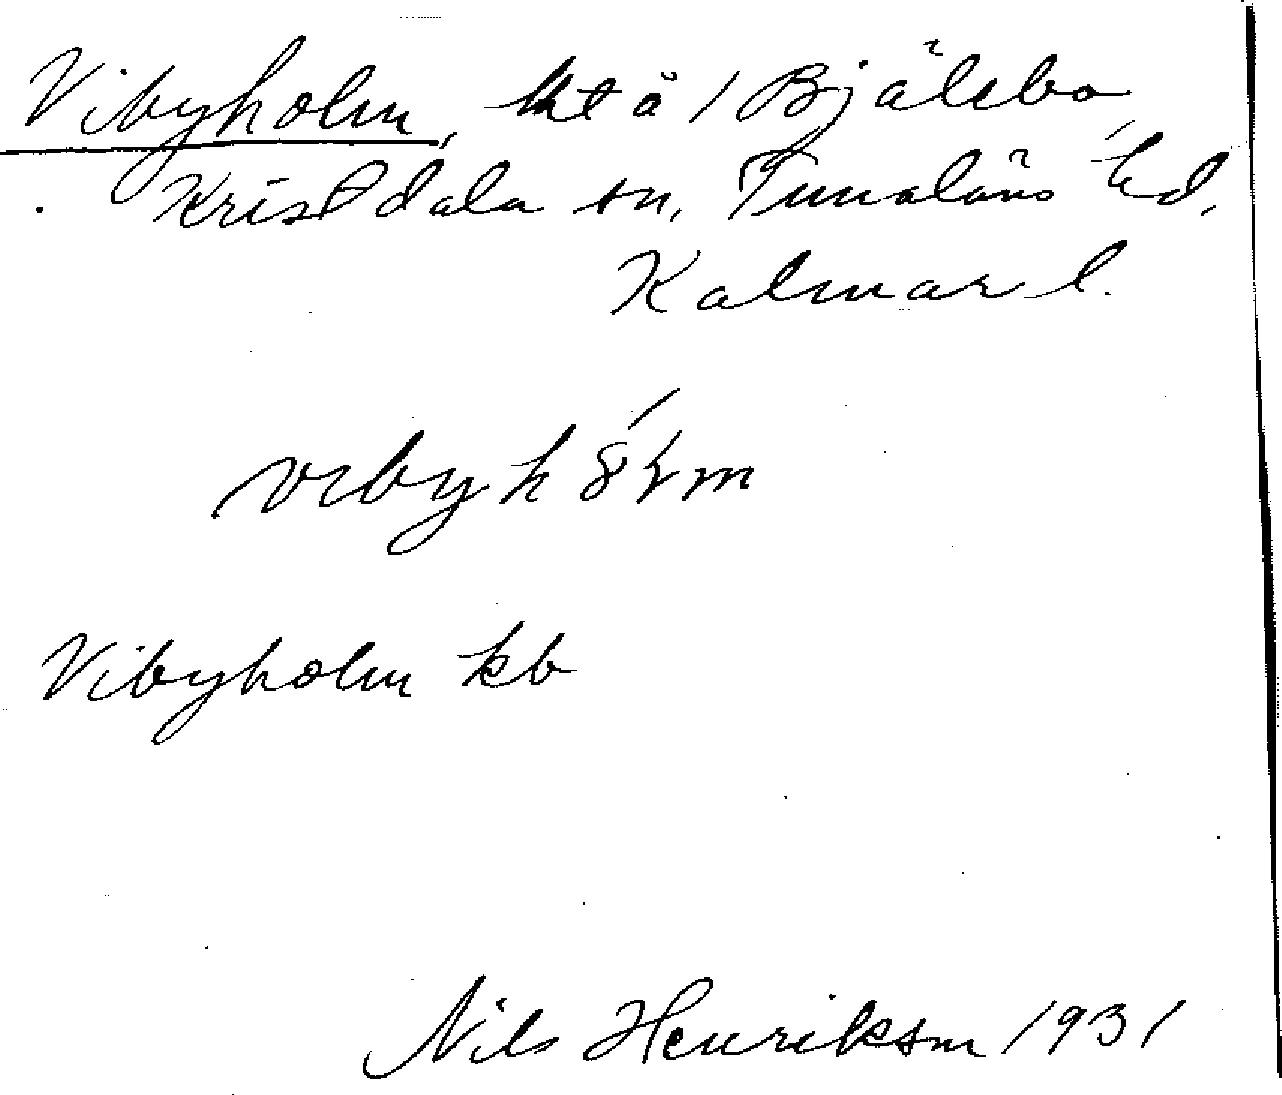 Vibyholm, ht å 1 Bjälebo,
Kristdala sn, Tunaläns hd,
Kalmar l.
Vibyholm kb
Nils Henrikson 1931